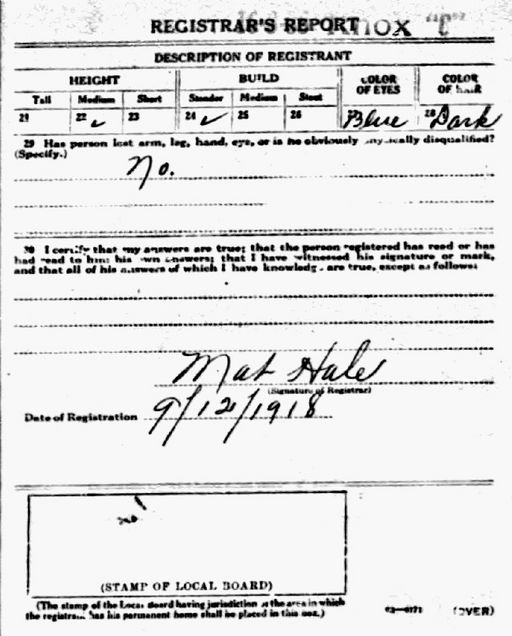 REGISTRAR'S REPORT
KNOX "C"
DESCRIPTION OF REGISTRANT
HEIGHT BUILD COLOR OF EYES COLOR OF HAIR
Tall Medium Short Slender Medium Stout
21 22 ✓ 23 24 ✓ 25 26 27 Blue 28 Dark
29 Has person lost arm, leg, hand, eye, or is he obviously physically disqualified?
(Specify.)
No.
30 I certify that my answers are true; that the person registered has read or has
had read to him his own answers; that I have witnessed his signature or mark,
and that all of his answers of which I have knowledge are true, except as follows:
Mat Hale
(Signature of Registrar)
Date of Registration 9/12/1918
(STAMP OF LOCAL BOARD)
(The stamp of the Local Board having jurisdiction of the area in which
the registrant has his permanent home shall be placed in this box.)
(OVER)